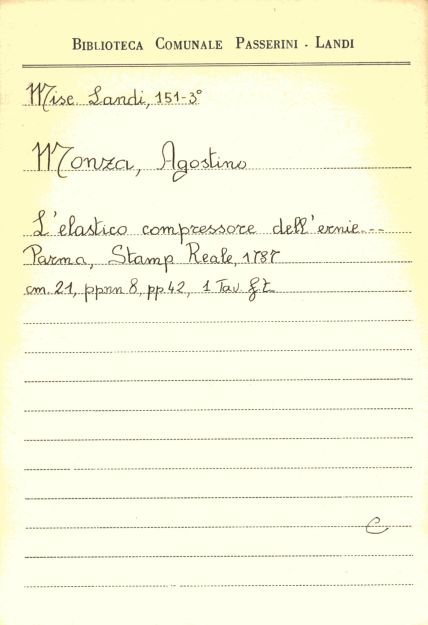 BIBLIOTECA COMUNALE PASSERINI - LANDI
Misc. Landi, 151-3°
Monza, Agostino
L'elastico compressore dell'ernie...
Parma, Stamp Reale, 1787
cm. 21, ppnn 8, pp. 42, 1 Tav. f.t.
C